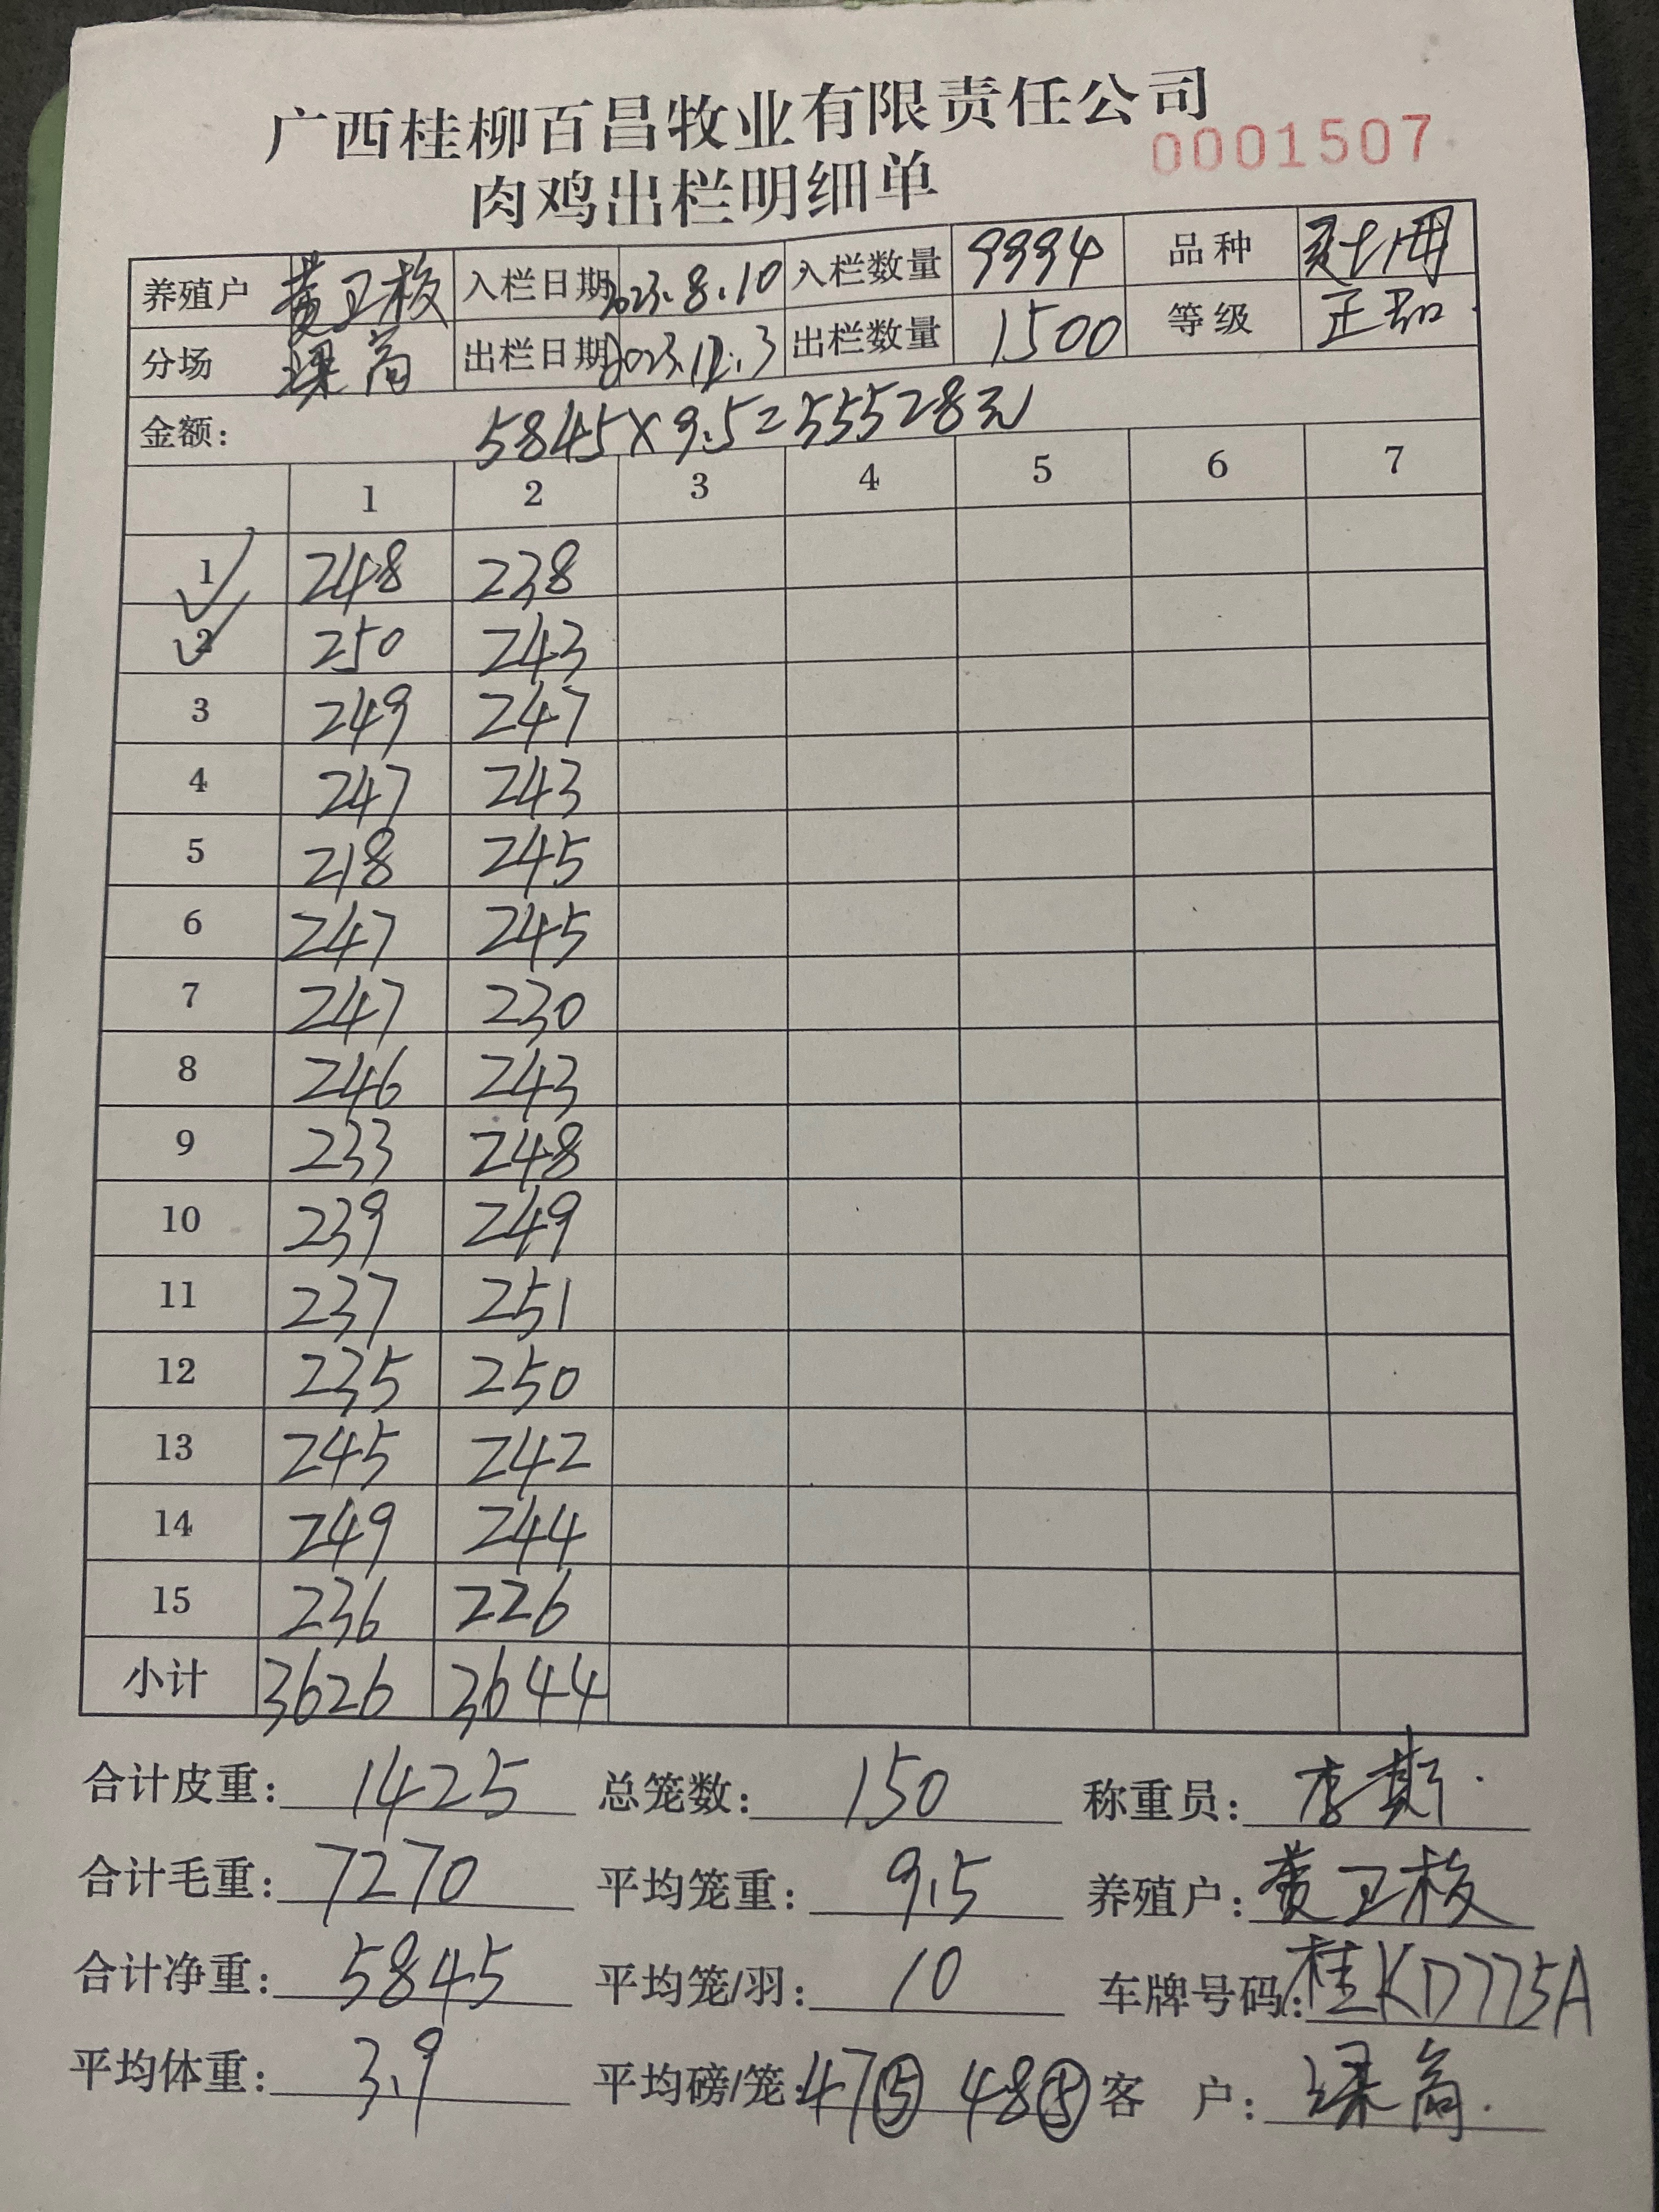 广西桂柳百昌牧业有限责任公司
0001507
肉鸡出栏明细单
养殖户 黄卫 入栏日期 2023.8.10 入栏数量 9994 品种
分场 绿高 出栏日期 2023.12.3 出栏数量 1500 等级 正品
金额: 5845×9.5=55528元
1 2 3 4 5 6 7
1 248 238
2 250 243
3 249 247
4 247 243
5 218 245
6 247 245
7 247 230
8 246 243
9 233 248
10 239 249
11 237 251
12 235 250
13 245 242
14 249 244
15 236 226
小计 3626 3644
合计皮重: 1425 总笼数: 150 称重员:
合计毛重: 7270 平均笼重: 9.5 养殖户: 黄卫
合计净重: 5845 平均笼/羽: 10 车牌号码: 桂KD775A
平均体重: 3.9 平均磅/笼: 47⑤ 48⑤ 客 户: 绿高